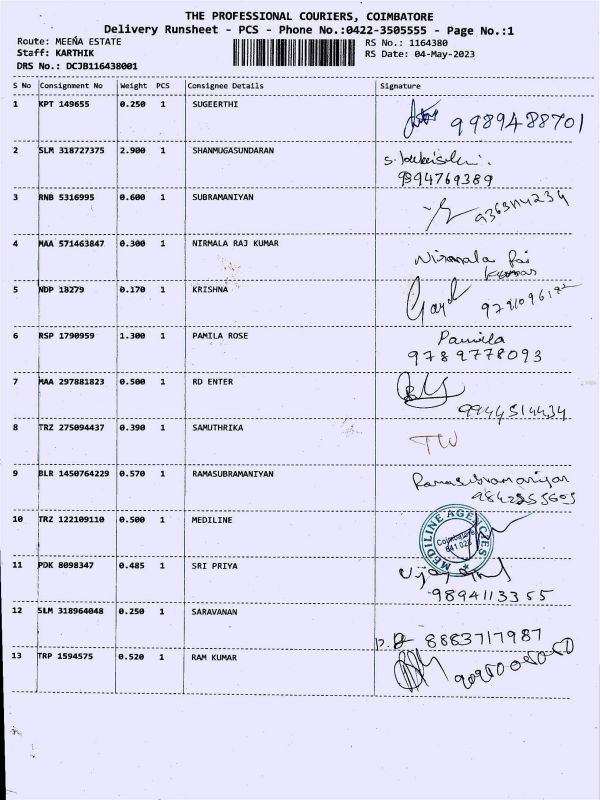 THE PROFESSIONAL COURIERS, COIMBATORE
Delivery Runsheet - PCS - Phone No.:0422-3505555 - Page No.:1
Route: MEENA ESTATE
RS No.: 1164380
Staff: KARTHIK
RS Date: 04-May-2023
DRS No.: DCJB116438001
S No Consignment No Weight PCS Consignee Details Signature
1 KPT 149655 0.250 1 SUGEERTHI
9989488701
2 SLM 318727375 2.900 1 SHANMUGASUNDARAN
9894769389
3 RNB 5316995 0.600 1 SUBRAMANIYAN
4 MAA 571463847 0.300 1 NIRMALA RAJ KUMAR
Nirmala Raj
Kumar
5 NDP 18279 0.170 1 KRISHNA
6 RSP 1790959 1.300 1 PAMILA ROSE
Pamila
9789778093
7 MAA 297881823 0.500 1 RD ENTER
9944514434
8 TRZ 275094437 0.390 1 SAMUTHRIKA
9 BLR 1450764229 0.570 1 RAMASUBRAMANIYAN
Ramasubramaniyan
10 TRZ 122109110 0.500 1 MEDILINE
MEDILINE AGENCIES
Coimbatore
641 028
11 PDK 8098347 0.485 1 SRI PRIYA
9894113355
12 SLM 318964048 0.250 1 SARAVANAN
8883717987
13 TRP 1594575 0.520 1 RAM KUMAR